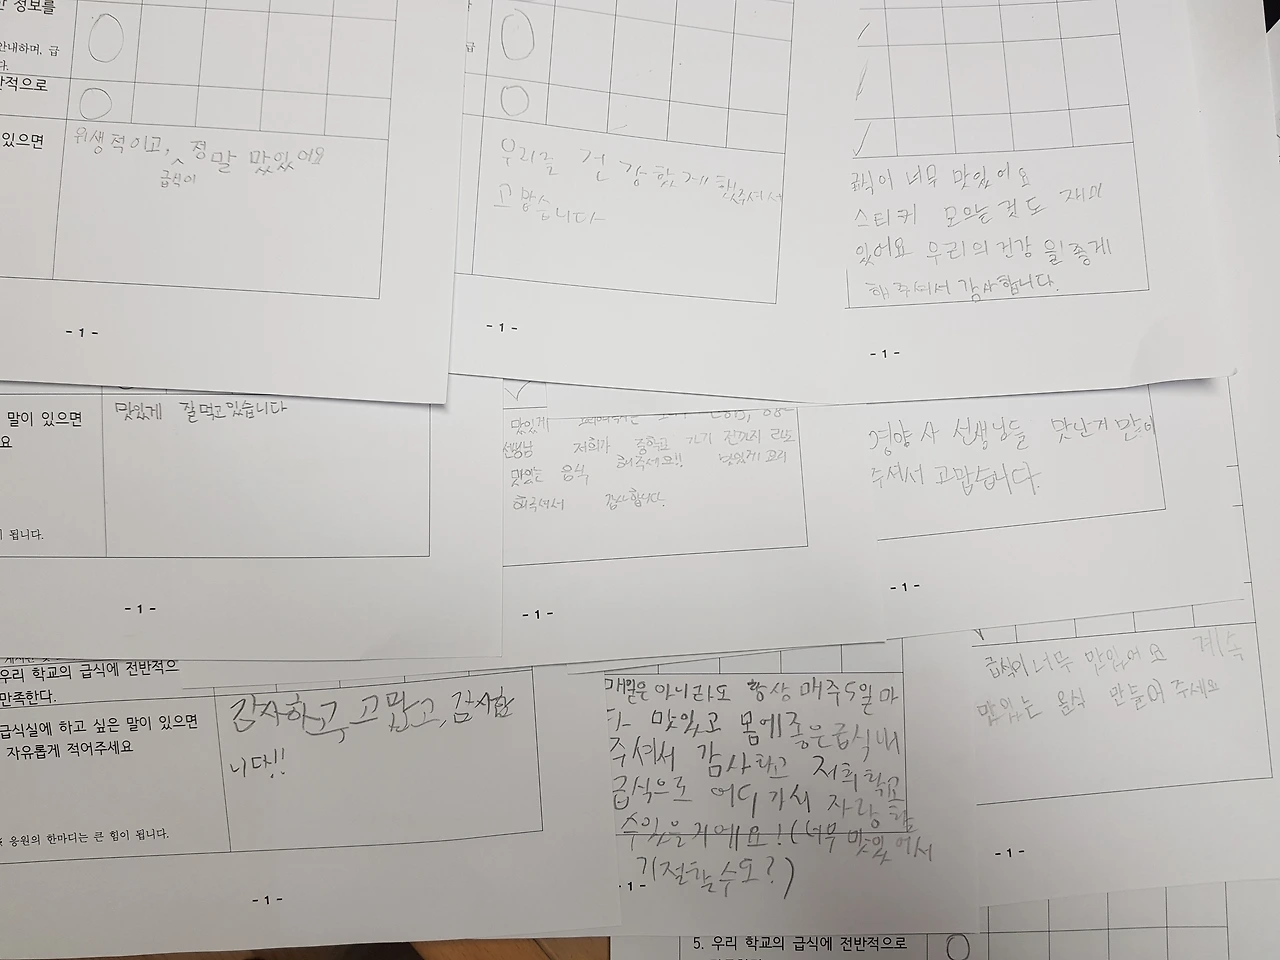 정보를
안내하며, 급
다.
반적으로
있으면
위생적이고, 정말 맛있어요
급식이
- 1 -
급
우리를 건강할게 했주셔서
고맙습니다
- 1 -
급식이 너무 맛있어요
스티커 모으는 것도 재미
있어요 우리의 건강 을! 좋게
해주셔서 감사합니다.
- 1 -
말이 있으면
요
됩니다.
맛있게 잘먹고있습니다
- 1 -
맛있게
선생님 저희가 중학교 가기 전까지
맛있는 음식 해주세요!! 맛있게 요리
해주셔서 감사합니다.
- 1 -
영양사 선생님들 맛난거 만들어
주셔서 고맙습니다.
- 1 -
우리 학교의 급식에 전반적으
만족한다.
급식실에 하고 싶은 말이 있으면
자유롭게 적어주세요
응원의 한마디는 큰 힘이 됩니다.
감사하고, 고맙고, 감사합
니다!!
- 1 -
매일은 아니라도 항상 매주 5일 마
다 맛있고 몸에 좋은 급식 내
주셔서 감사하고 저희 학교
급식으로 어디 가서 자랑 할
수있을거에요! (너무 맛있어서
기절할수도?)
- 1 -
급식이 너무 맛있어요 계속
맛있는 음식 만들어 주세요
- 1 -
5. 우리 학교의 급식에 전반적으로